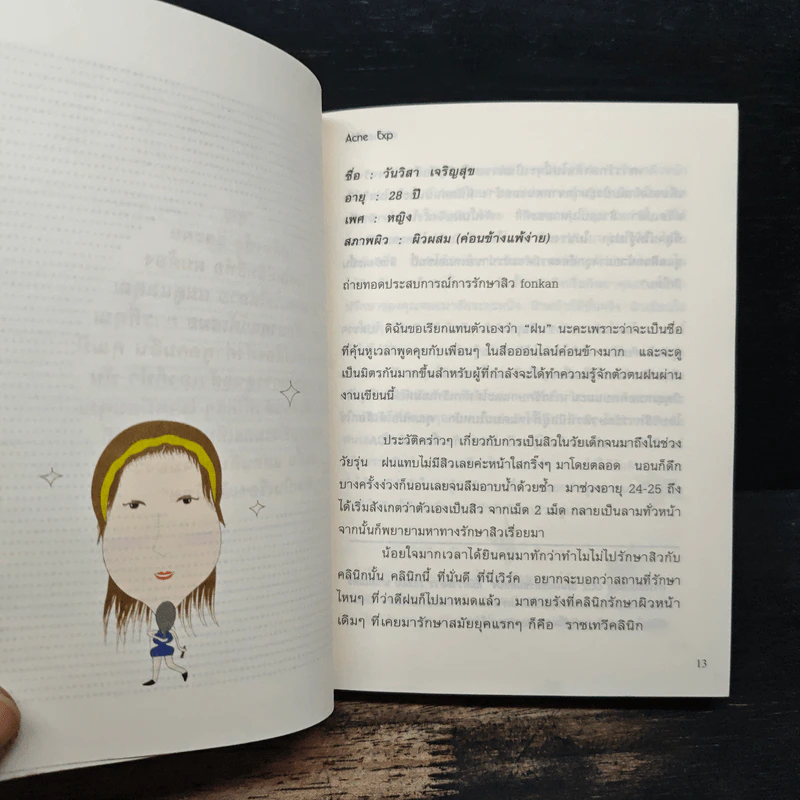 Acne Exp
ชื่อ : วันวิสา เจริญสุข
อายุ : 28 ปี
เพศ : หญิง
สภาพผิว : ผิวผสม (ค่อนข้างแพ้ง่าย)
ถ่ายทอดประสบการณ์การรักษาสิว fonkan
ดิฉันขอเรียกแทนตัวเองว่า "ฝน" นะคะเพราะว่าจะเป็นชื่อ
ที่คุ้นหูเวลาพูดคุยกับเพื่อนๆ ในสื่อออนไลน์ค่อนข้างมาก และจะดู
เป็นมิตรกันมากขึ้นสำหรับผู้ที่กำลังจะได้ทำความรู้จักตัวตนฝนผ่าน
งานเขียนนี้
ประวัติคร่าวๆ เกี่ยวกับการเป็นสิวในวัยเด็กจนมาถึงในช่วง
วัยรุ่น ฝนแทบไม่มีสิวเลยค่ะหน้าใสกริ๊งๆ มาโดยตลอด นอนก็ดึก
บางครั้งง่วงก็นอนเลยจนลืมอาบน้ำด้วยซ้ำ มาช่วงอายุ 24-25 ถึง
ได้เริ่มสังเกตว่าตัวเองเป็นสิว จากเม็ด 2 เม็ด กลายเป็นลามทั่วหน้า
จากนั้นก็พยายามหาทางรักษาสิวเรื่อยมา
น้อยใจมากเวลาได้ยินคนมาทักว่าทำไมไม่ไปรักษาสิวกับ
คลินิกนั้น คลินิกนี้ ที่นั่นดี ที่นี่เวิร์ค อยากจะบอกว่าสถานที่รักษา
ไหนๆ ที่ว่าดีฝนก็ไปมาหมดแล้ว มาตายรังที่คลินิกรักษาผิวหน้า
เดิมๆ ที่เคยมารักษาสมัยยุคแรกๆ ก็คือ ราชเทวีคลินิก
13